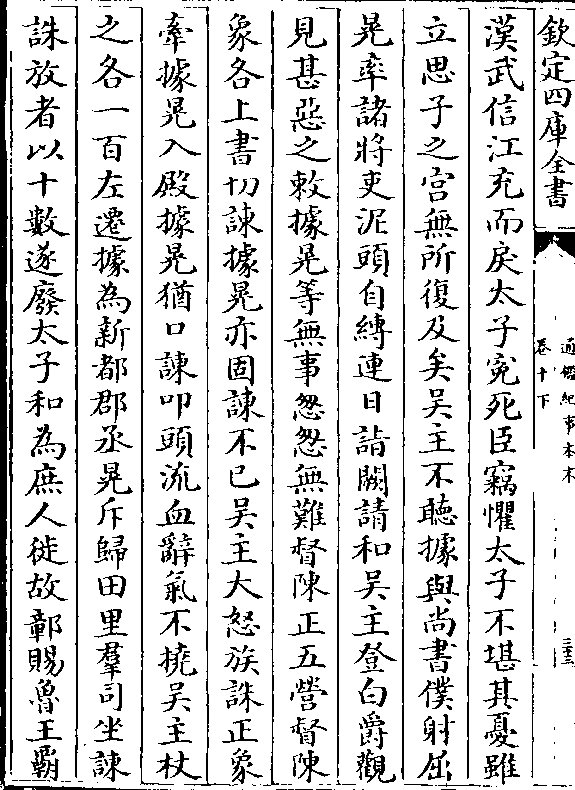 欽定四庫全書
通鑑紀事本末
卷十下
漢武信江充而戾太子寃死臣竊懼太子不堪其憂雖
立思子之宫無所復及矣吴主不聽據與尚書僕射屈
晃率諸將吏泥頭自縛連日詣闕請和吴主登白爵觀
見甚惡之敕據晃等無事怱怱無難督陳正五營督陳
象各上書切諫據晃亦固諫不已吴主大怒族誅正象
牽據晃入殿據晃猶口諫叩頭流血辭氣不撓吴主杖
之各一百左遷據為新都郡丞晃斥歸田里羣司坐諫
誅放者以十數遂廢太子和為庶人徙故鄣賜魯王霸